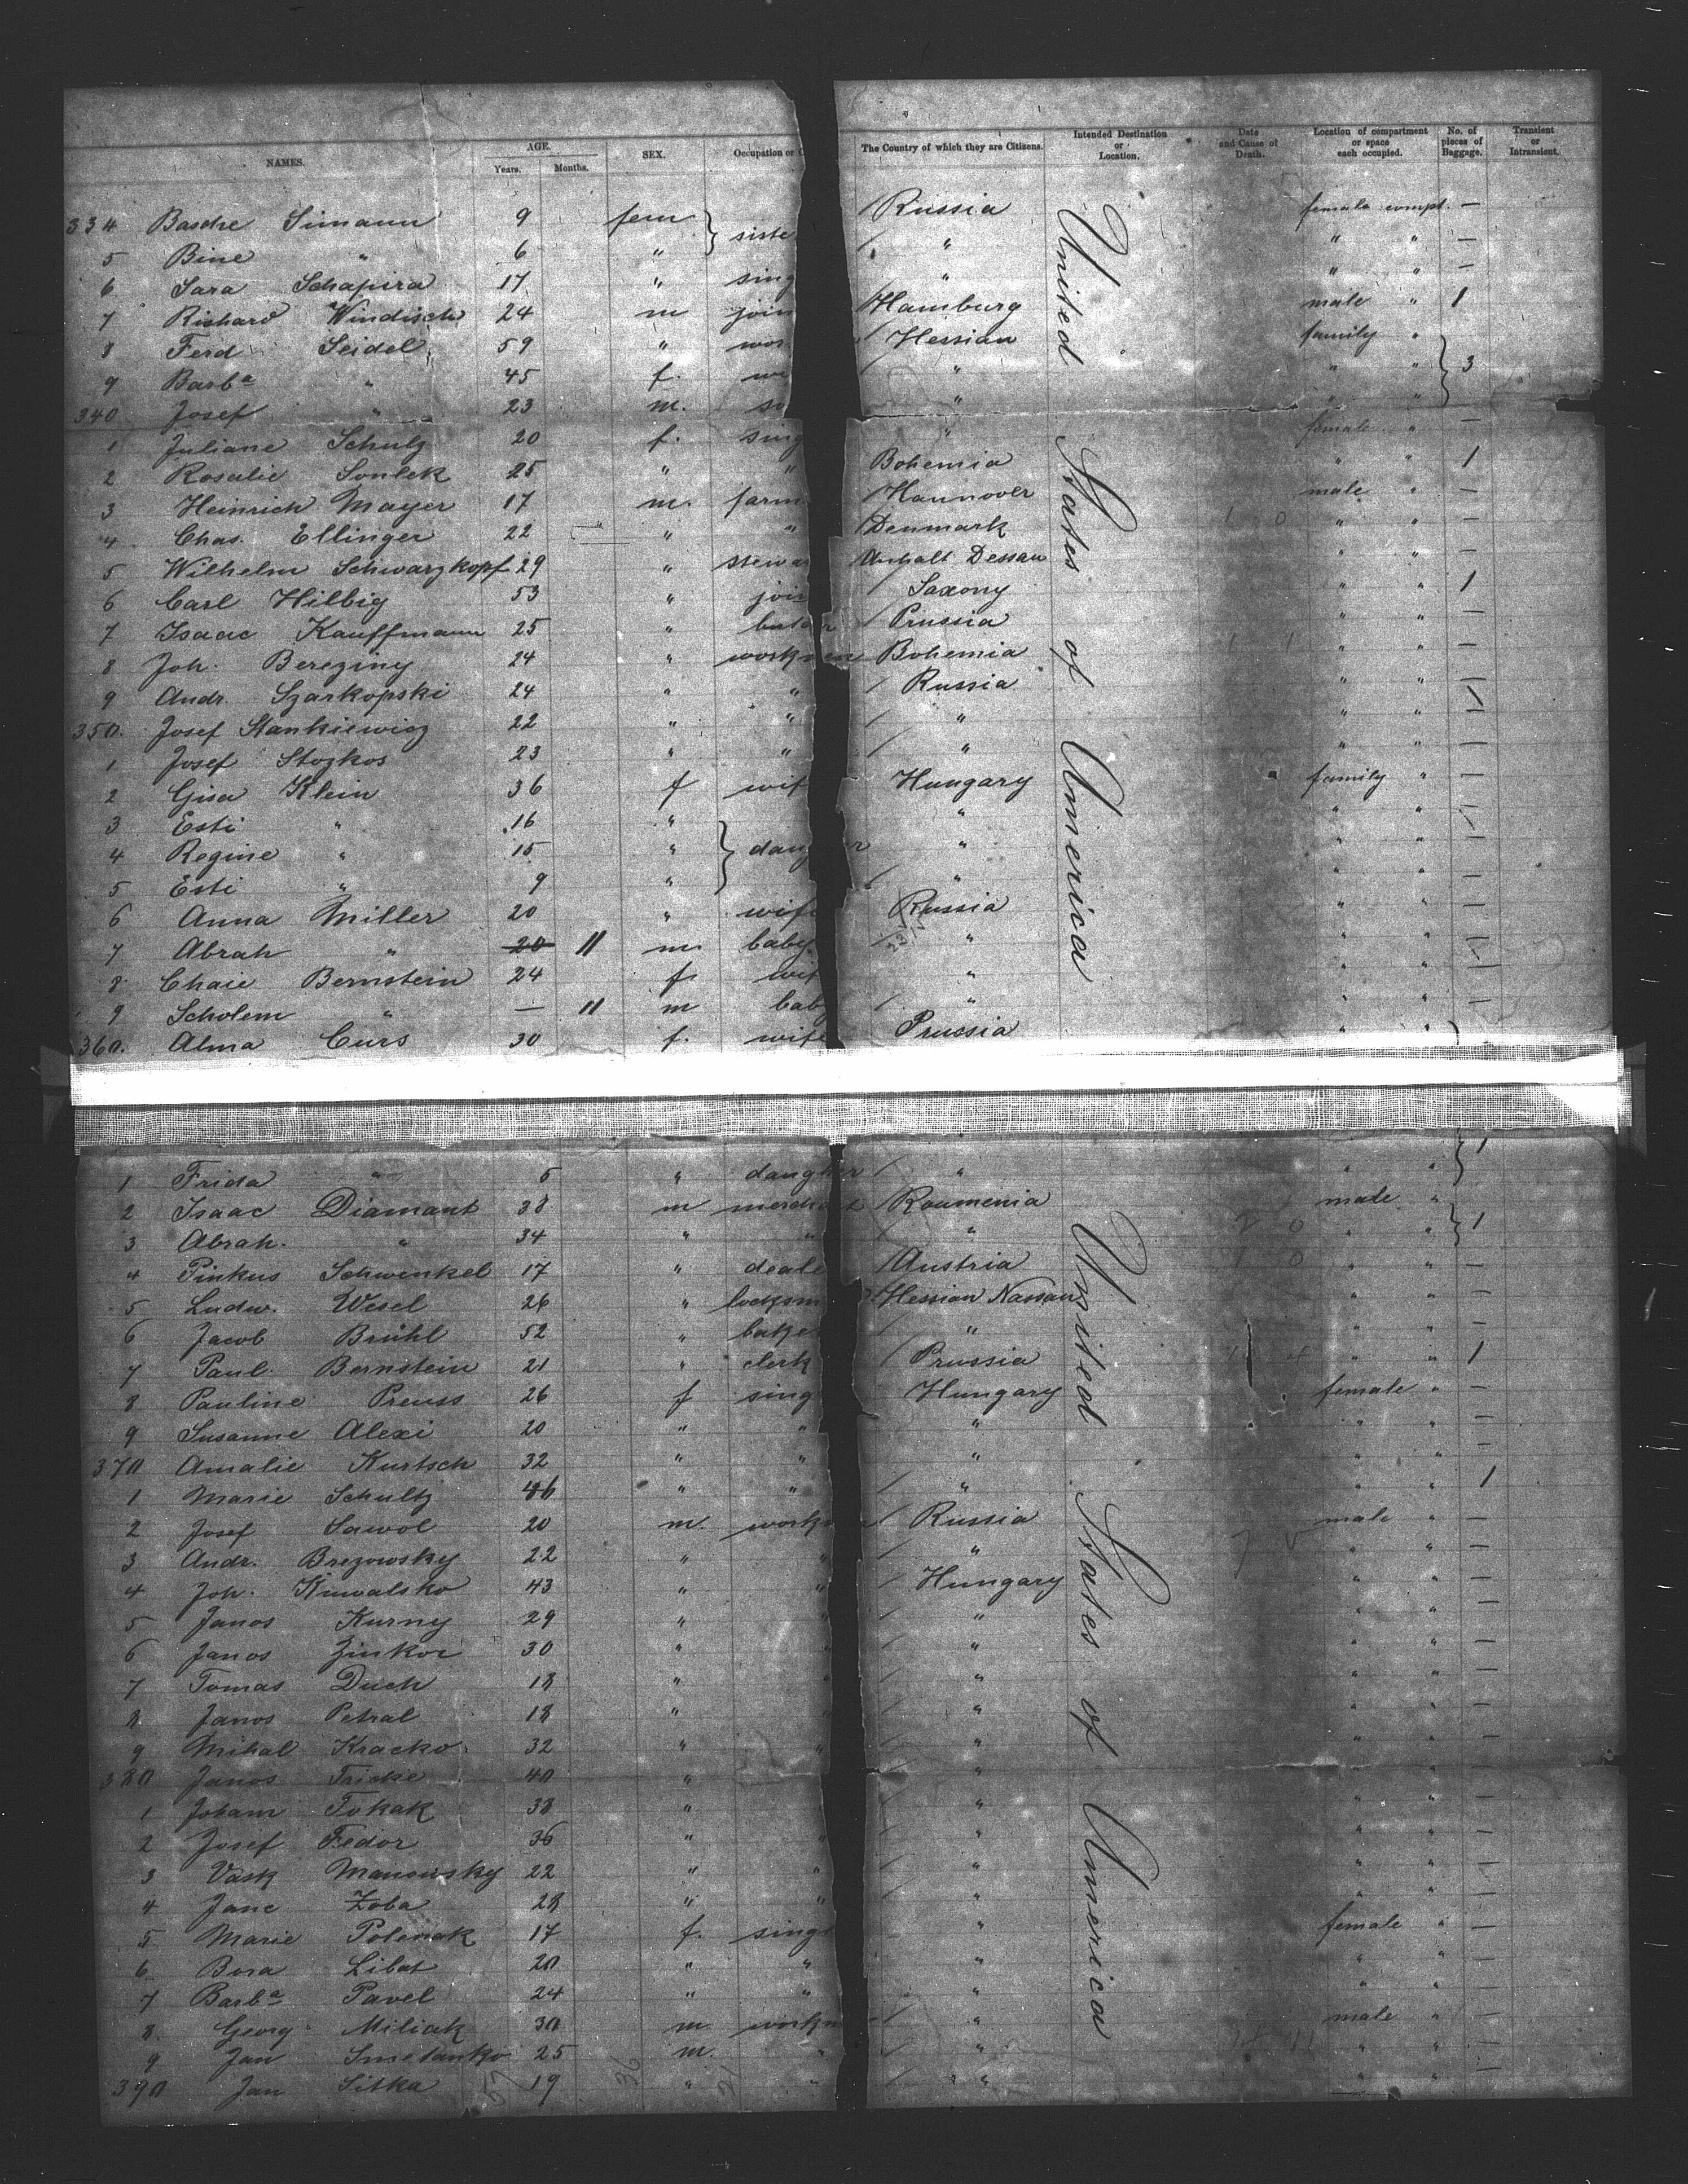 NAMES. AGE. Years. Months. SEX. Occupation or The Country of which they are Citizens. Intended Destination or Location. Date and Cause of Death. Location of compartment or space each occupied. No. of pieces of Baggage. Transient or Intransient.
334 Basche Simann 9 fem } siste Russia female compt. —
5 Bine " 6 " " " " —
6 Sara Schapira 17 " sing " " " —
7 Richard Windisch 24 m join Hamburg male " 1
8 Ferd Seidel 59 " wor Hessian family "
9 Barbª " 45 f. wi " " " } 3
340 Josef " 23 m. so " " "
1 Juliane Schulz 20 f. sing " female " —
2 Rosalie Sonlek 25 " " Bohemia " " 1
3 Heinrich Mayer 17 m. farm Hannover male " —
4 Chas. Ellinger 22 " " Denmark " " —
5 Wilhelm Schwarzkopf 29 " stewa Anhalt Dessau " " —
6 Carl Hilbig 53 " join Saxony " " 1
7 Isaac Kauffmann 25 " Prussia " " —
8 Joh. Bereziny 24 " workmen Bohemia " " —
9 Andr. Szarkopski 24 " " Russia " " 1
350. Josef Stankiewicz 22 " " " " " —
1 Josef Stozkos 23 " " " " " —
2 Gisa Klein 36 f wif Hungary family " —
3 Esti " 16 " " " "
4 Regine " 15 " } daug r " " " —
5 Esti " 9 " " " " —
6 Anna Miller 20 " wife Russia " " —
7 Abrah " 20 11 m. baby " " "
8 Chaie Bernstein 24 f. wif " " " —
9 Scholem " — 11 m baby " " " —
360. Alma Curs 30 f. wife Prussia " "
United States of America
1 Frida " 5 " daughter " " " } 1
2 Isaac Diamant 38 m merchant Roumenia male "
3 Abrah. " 34 " " " " " } 1
4 Pinkus Schwenkel 17 " deale Austria " " —
5 Ludw. Wesel 26 " locksm Hessian Nassau " " —
6 Jacob Brühl 52 " bake " " " —
7 Paul Bernstein 21 " clerk Prussia " " 1
8 Pauline Preuss 26 f sing Hungary female " —
9 Susanne Alexi 20 " " " " " —
370 Amalie Kurtsch 32 " " " " " —
1 Marie Schultz 46 " " " " " 1
2 Josef Sawol 20 m. work Russia male " —
3 Andr. Brezowsky 22 " " " " " —
4 Joh. Kuwalsko 43 " " Hungary " " —
5 Janos Kurny 29 " " " " " —
6 Janos Zinkor 30 " " " " " —
7 Tomas Duch 18 " " " " " —
8 Janos Petral 18 " " " " " —
9 Mihal Kracko 32 " " " " " —
380 Janos Fricke 40 " " " " —
1 Johann Tokak 38 " " " " —
2 Josef Fedor 36 " " " " " —
3 Vask Manousky 22 " " " " " —
4 Jane Zoba 28 " " " " " —
5 Marie Polenak 17 f. sing " female " —
6 Bora Libat 20 " " " " " —
7 Barbª Pavel 24 " " " " " —
8. Georg Miliak 30 m. workm " male " —
9 Jan Smetanko 25 m. " " " " —
390 Jan Sitka 19 " " " " " —
United States of America